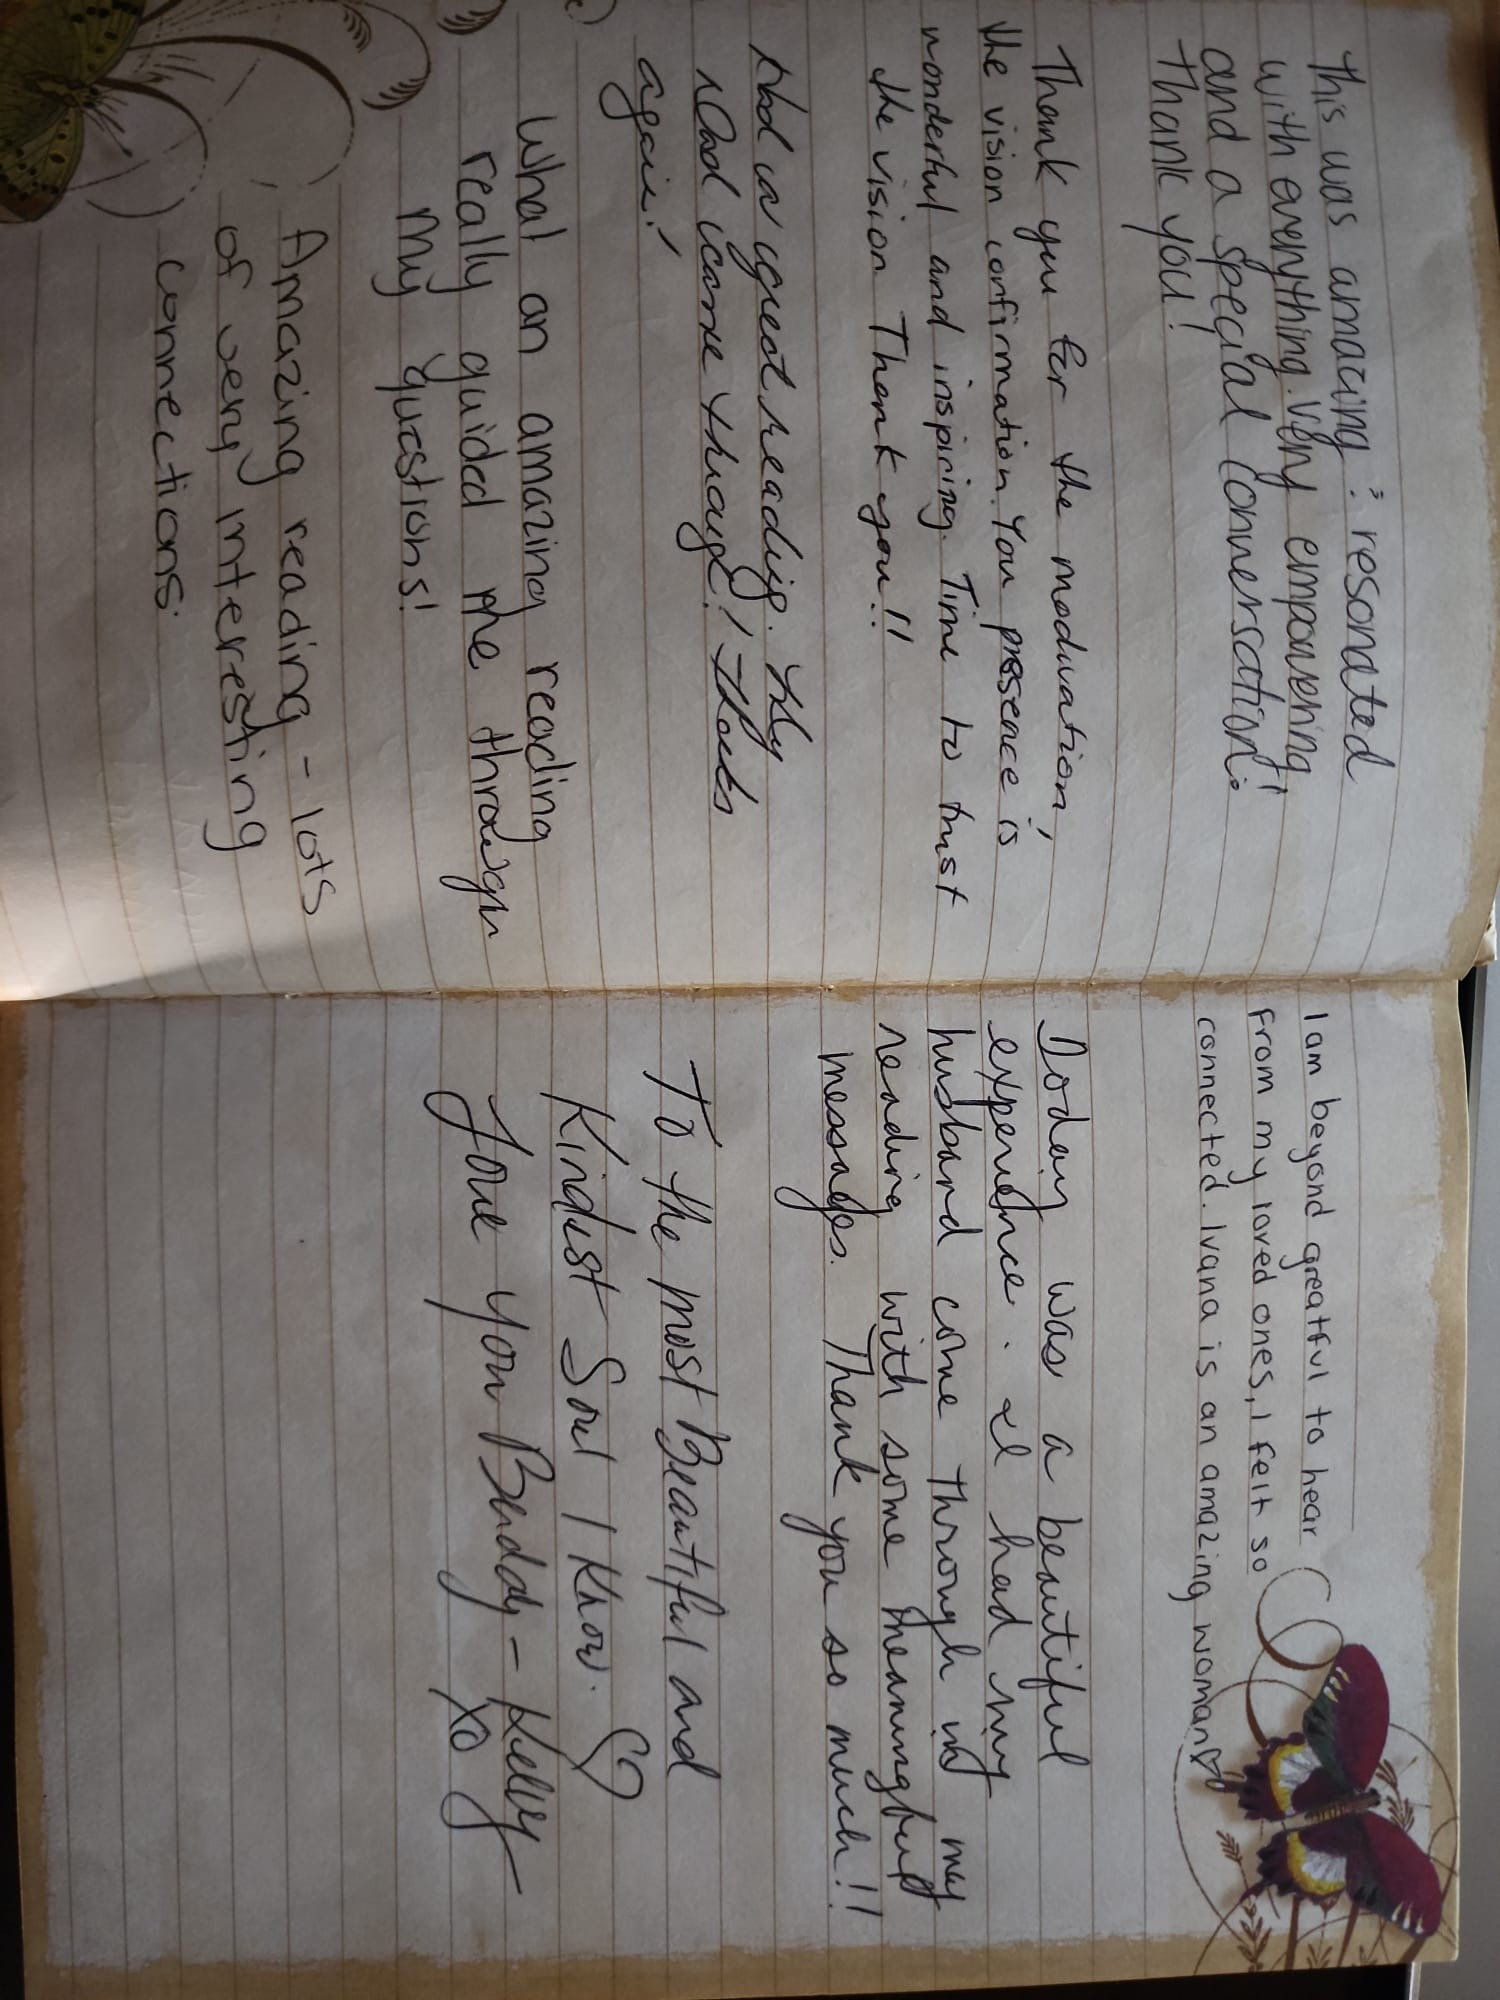 This was amazing resonated
with everything. Very empowering!
and a special conversation!
Thank you!
Thank you for the modivation,
the vision confirmation. You presence is
wonderful and inspiring. Time to trust
the vision Thank you!!
Had a great reading. My
Dad came through! Thanks
again!
What an amazing reading
really guided me through
my questions!
Amazing reading - lots
of very interesting
connections.
I am beyond greatful to hear
from my loved ones, I felt so
connected. Ivana is an amazing woman♡
Today was a beautiful
experience. I had my
husband come through in my
reading with some meaningful
messages. Thank you so much!!
To the most Beautiful and
Kindest Soul I Know. ♡
Love you Buddy - Kelly
xo